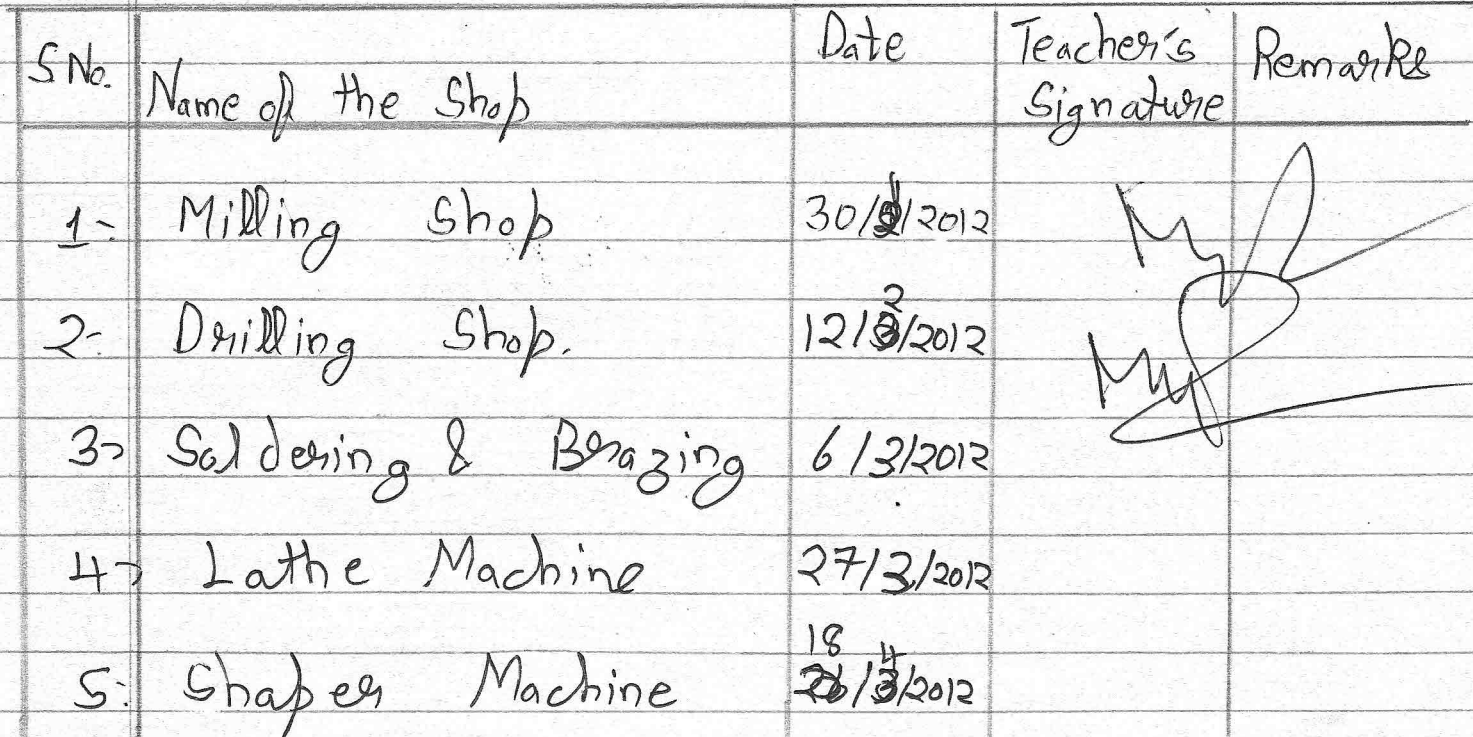 S No. Name of the Shop Date Teacher's Signature Remarks
1- Milling Shop 30/1/2012
2- Drilling Shop. 12/2/2012
3- Soldering & Brazing 6/3/2012
4- Lathe Machine 27/3/2012
5- Shaper Machine 18/4/2012